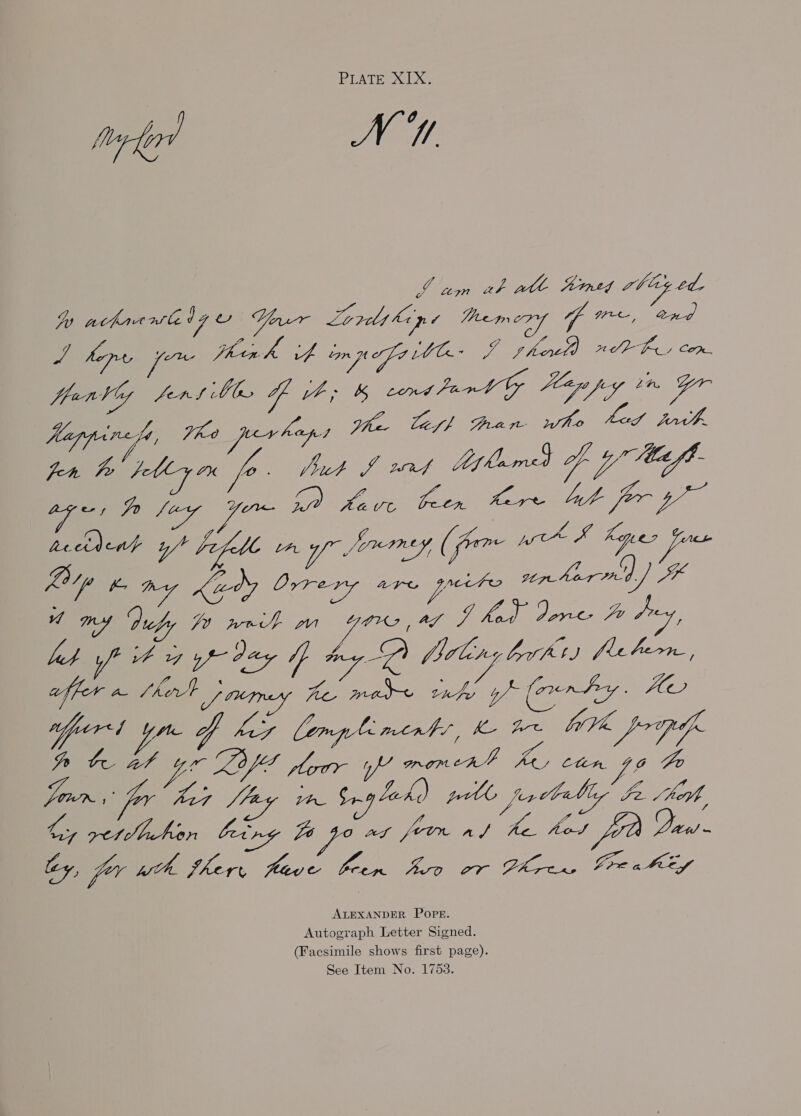 PLATE XIX.
My Lord N° 11.
I am at all times obliged
to acknowledge Your Lordships Memory of me, and
I hope you think it impossible I should not be con
stantly sensible of it; & constantly Happy in Yr
Happiness, tho perhaps the last Man who has writ-
ten to tell you so. But I was ashamed of yr Mess-
ages, to say You wd have been here but for yt
Accident yt befell in yr Journey, (from wch I hope Your
Ldp & my Lady Orrery are quite unharmd.) It
is my Duty to wait on you, as I had done to day,
but yt it is ye day of my Ld Bolingbroke's Return,
after a short journey he made into ye Country. He
assures you of his Compliments, & we both propose
to be at yr Ldps door ye moment he can go to
Town; for his stay in England will probably be short,
his resolution being to go as soon as he has sold Daw-
ley, for wch there have been two or three Treaties
ALEXANDER POPE.
Autograph Letter Signed.
(Facsimile shows first page).
See Item No. 1753.